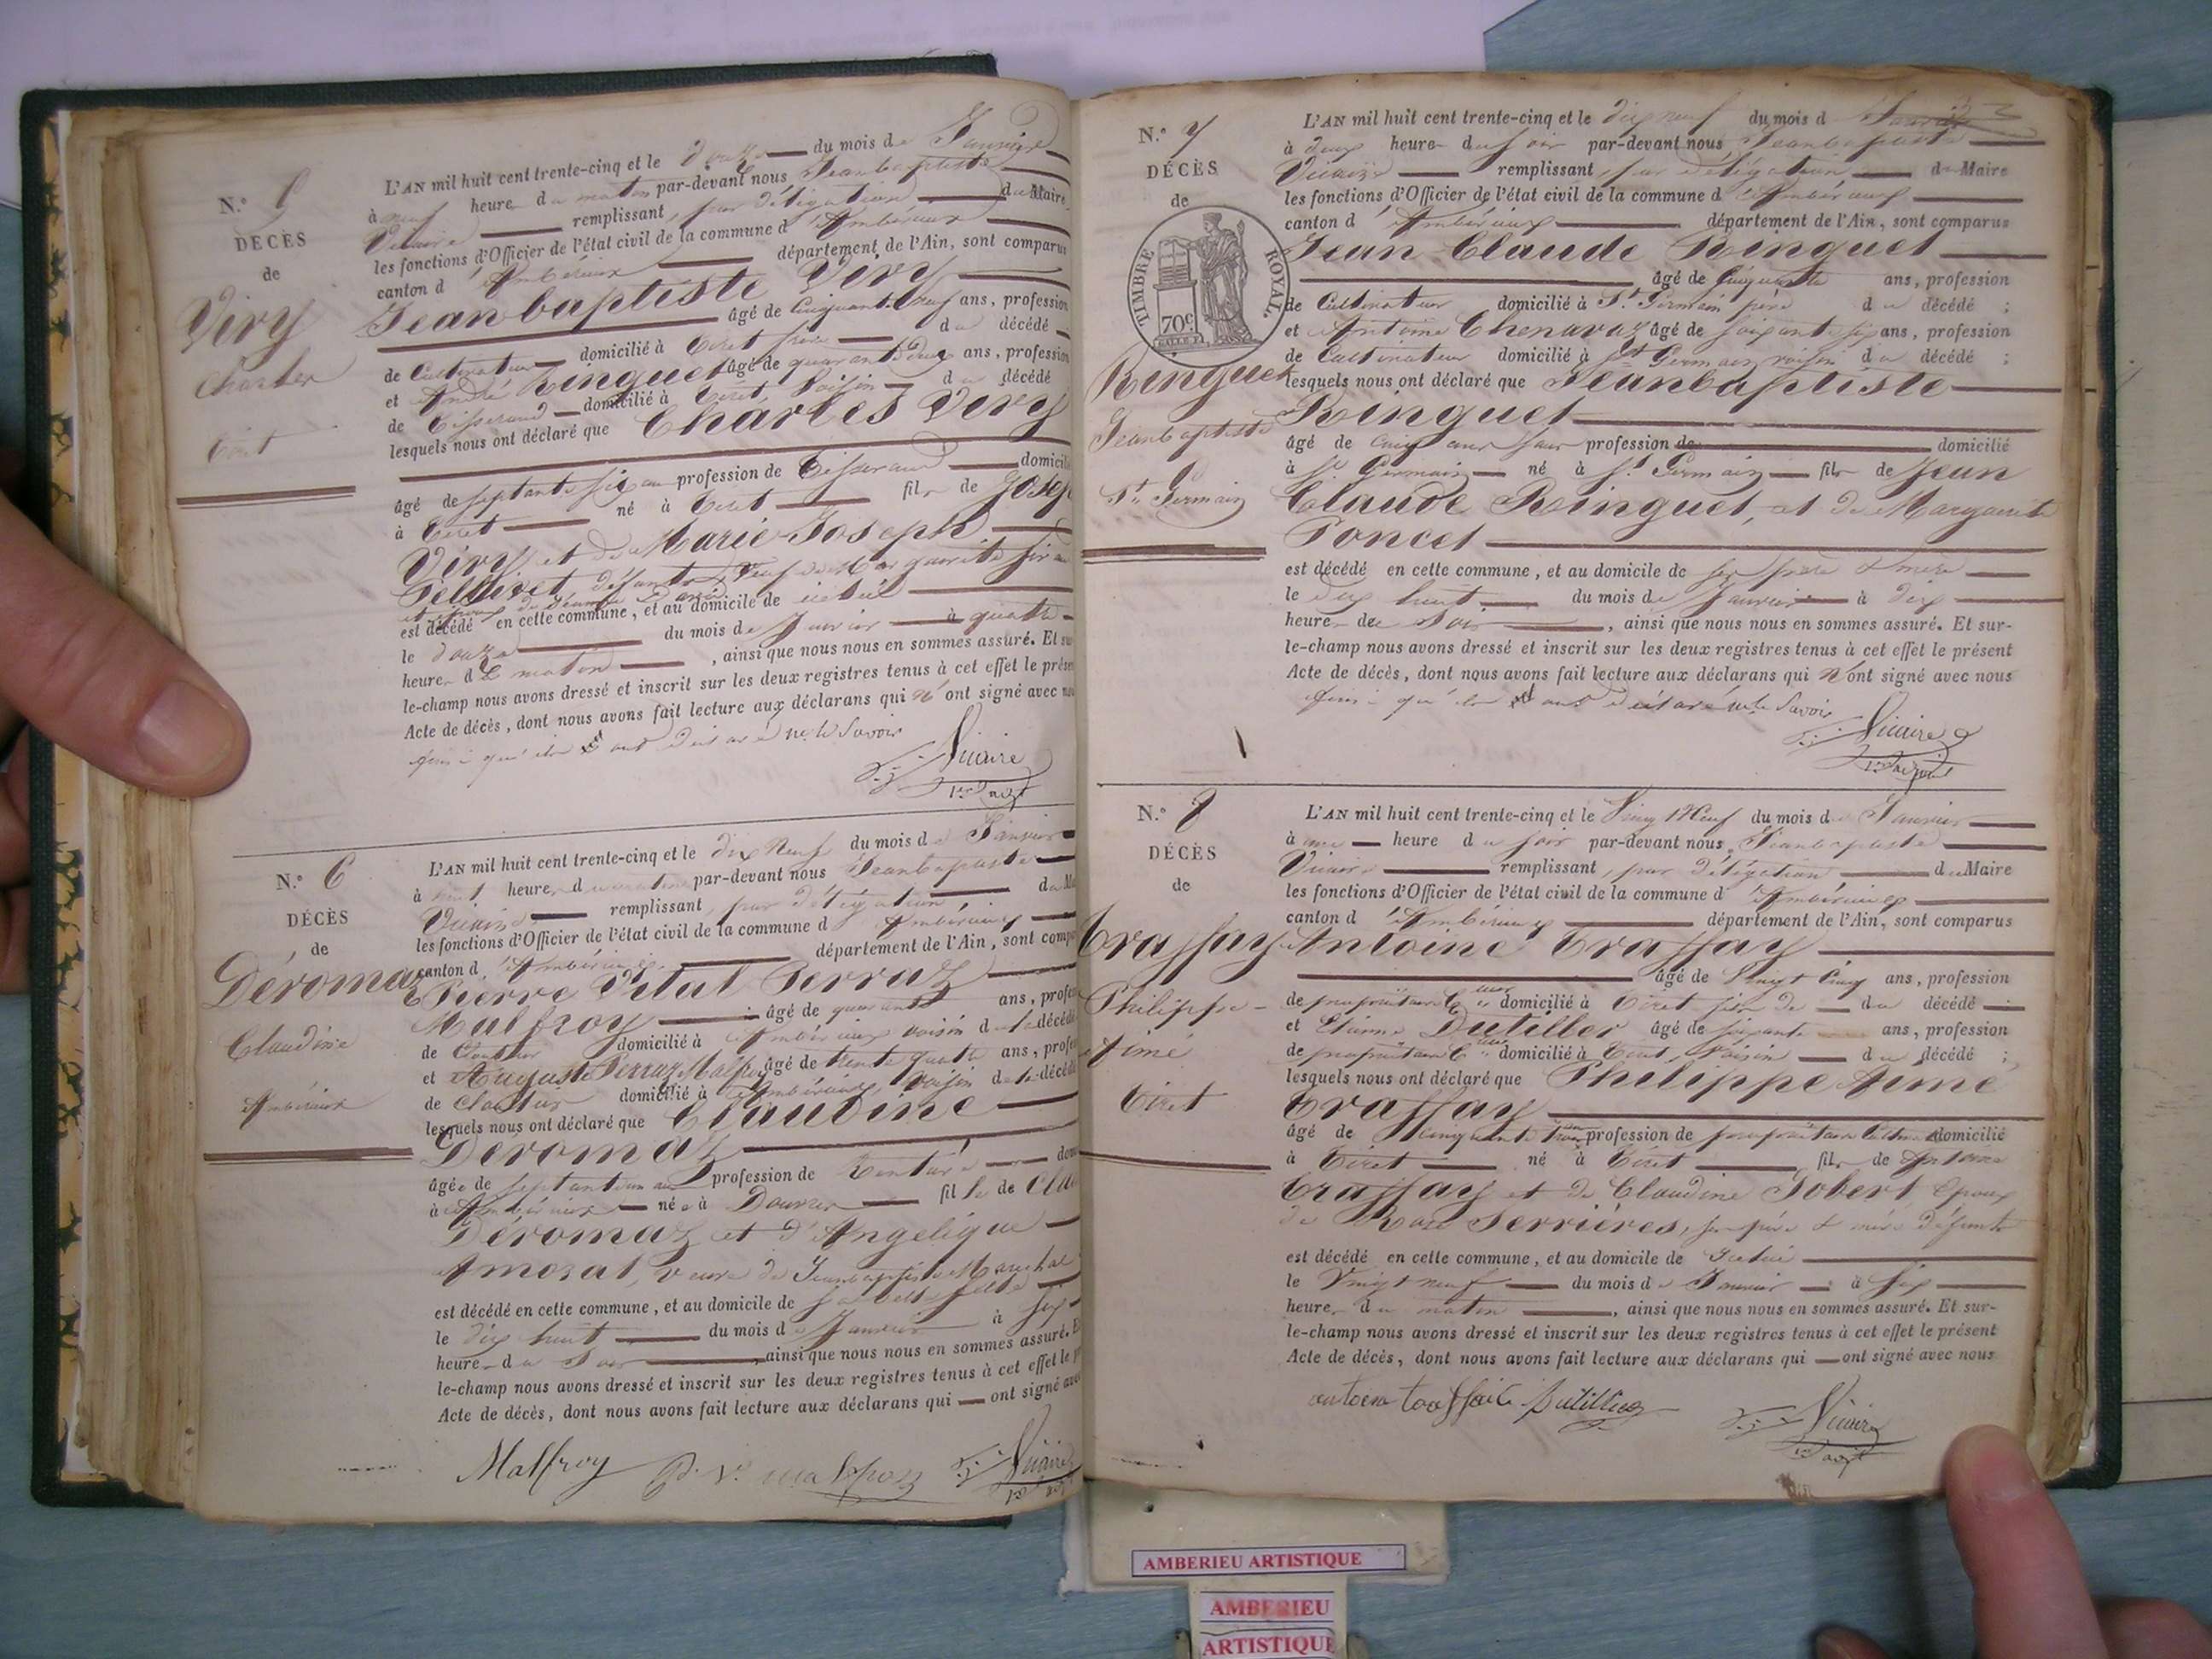 N.° 5
DÉCÈS
de
Viry
Charles
Tiret
L'AN mil huit cent trente-cinq et le douze du mois de Janvier
à neuf heures du matin par-devant nous Jeanbaptiste
Vicaire remplissant, par délégation du Maire
les fonctions d'Officier de l'état civil de la commune d'Ambérieux
canton d'Ambérieux département de l'Ain, sont comparus
Jeanbaptiste Viry
âgé de Cinquante neuf ans, profession
de Cultivateur domicilié à Tiret frère du décédé
et André Ringuet âgé de quarante deux ans, profession
de Tisserand domicilié à Tiret, Voisin du décédé
lesquels nous ont déclaré que Charles Viry
âgé de septante six ans profession de Tisserand domicilié
à Tiret né à Tiret fils de Joseph
Viry et de Marie Joseph
défunts, Veuf de Marguerite
est décédé en cette commune, et au domicile de
le douze du mois de Janvier à quatre
heures du matin, ainsi que nous nous en sommes assuré. Et sur-
le-champ nous avons dressé et inscrit sur les deux registres tenus à cet effet le présent
Acte de décès, dont nous avons fait lecture aux déclarans qui n'ont signé avec nous
ainsi qu'ils ont déclaré ne le Savoir
Vicaire
N.° 6
DÉCÈS
de
Déromaz
Claudine
Ambérieux
L'AN mil huit cent trente-cinq et le dix Neuf du mois de Janvier
à huit heures du matin par-devant nous Jeanbaptiste
Vicaire remplissant, par délégation du Maire
les fonctions d'Officier de l'état civil de la commune d'Ambérieux
canton d'Ambérieux département de l'Ain, sont comparus
Pierre Vital Perraz
Malfroy âgé de quarante ans, profession
de Cloutier domicilié à Ambérieux voisin de la décédée
et Auguste Perraz Malfroy âgé de trente quatre ans, profession
de Cloutier domicilié à Ambérieux, Voisin de la décédée
lesquels nous ont déclaré que Claudine
Déromaz
âgée de septante un ans profession de
à Ambérieux née à Douvres fille de
Déromaz et d'Angélique
Amozat, veuve de Jeanbaptiste Maréchal
est décédé en cette commune, et au domicile de sa belle fille
le dix huit du mois de Janvier à six
heures du Soir, ainsi que nous nous en sommes assuré. Et
le-champ nous avons dressé et inscrit sur les deux registres tenus à cet effet le
Acte de décès, dont nous avons fait lecture aux déclarans qui ont signé avec
Malfroy P. V. Vicaire
N.° 7
DÉCÈS
de
TIMBRE ROYAL
70c.
Ringuet
Jeanbaptiste
St Germain
L'AN mil huit cent trente-cinq et le dix neuf du mois d Janvier
à deux heures du soir par-devant nous Jeanbaptiste
Vicaire remplissant, par délégation du Maire
les fonctions d'Officier de l'état civil de la commune d'Ambérieux
canton d'Ambérieux département de l'Ain, sont comparus
Jean Claude Ringuet
âgé de Cinquante ans, profession
de Cultivateur domicilié à St Germain père du décédé ;
et Antoine Chenavaz âgé de soixante six ans, profession
de Cultivateur domicilié à St Germain voisin du décédé ;
lesquels nous ont déclaré que Jeanbaptiste
Ringuet
âgé de cinq ans profession de domicilié
à St Germain né à St Germain fils de Jean
Claude Ringuet, et de Marguerite
Poncet
est décédé en cette commune, et au domicile de ses père & mère
le dix huit du mois de Janvier à dix
heures du Soir, ainsi que nous nous en sommes assuré. Et sur-
le-champ nous avons dressé et inscrit sur les deux registres tenus à cet effet le présent
Acte de décès, dont nous avons fait lecture aux déclarans qui n'ont signé avec nous
ainsi qu'ils ont déclaré ne le Savoir
Vicaire
N.° 8
DÉCÈS
de
Traffay
Philippe
Aimé
Tiret
L'AN mil huit cent trente-cinq et le Vingt Neuf du mois de Janvier
à une heure du soir par-devant nous, Jeanbaptiste
Vicaire remplissant, par délégation du Maire
les fonctions d'Officier de l'état civil de la commune d'Ambérieux
canton d'Ambérieux département de l'Ain, sont comparus
Antoine Traffay
âgé de Vingt Cinq ans, profession
de propriétaire domicilié à Tiret fils du décédé
et Etienne Dutillet âgé de soixante ans, profession
de propriétaire domicilié à Tiret, Voisin du décédé ;
lesquels nous ont déclaré que Philippe Aimé
Traffay
âgé de Cinquante profession de propriétaire domicilié
à Tiret né à Tiret fils de Antoine
Traffay et de Claudine Jobert, Epoux
de Serrières, ses père & mère défunts
est décédé en cette commune, et au domicile de
le Vingt neuf du mois de Janvier à six
heures du matin, ainsi que nous nous en sommes assuré. Et sur-
le-champ nous avons dressé et inscrit sur les deux registres tenus à cet effet le présent
Acte de décès, dont nous avons fait lecture aux déclarans qui ont signé avec nous
Vicaire
AMBERIEU ARTISTIQUE
AMBERIEU
ARTISTIQUE